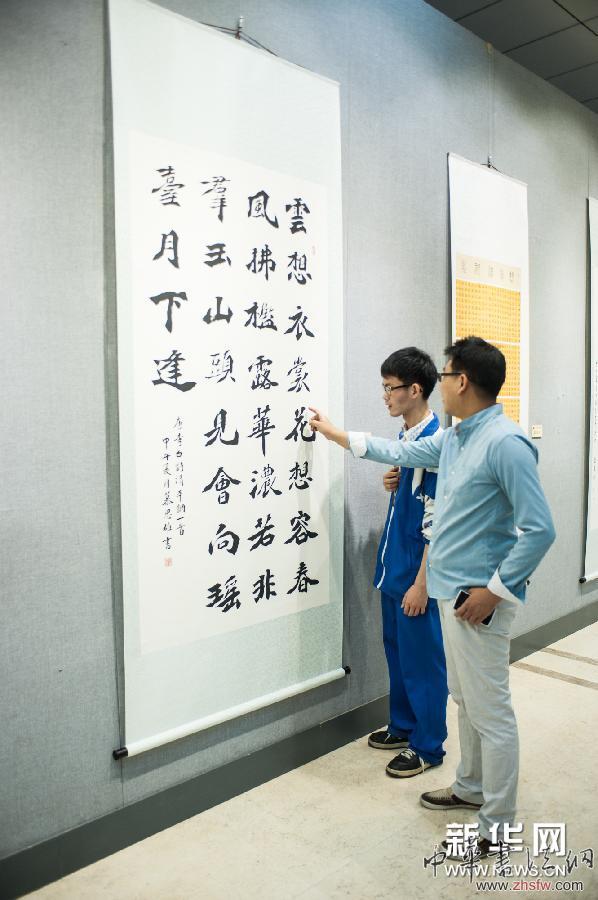 雲想衣裳花想容春
風拂檻露華濃若非
羣玉山頭見會向瑤
臺月下逢
唐李白詩清平調一首
甲午夏月蔡書
新华网
WWW.NEWS.CN
中華書法網
www.zhsfw.com